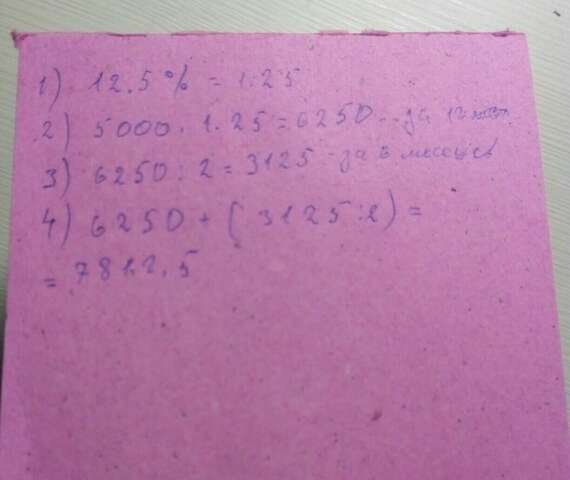 1) 12.5% = 1.25
2) 5000 . 1.25 = 6250 - за 12
3) 6250 : 2 = 3125 - за 6 месяцев
4) 6250 + ( 3125 : 2 ) =
= 7812.5